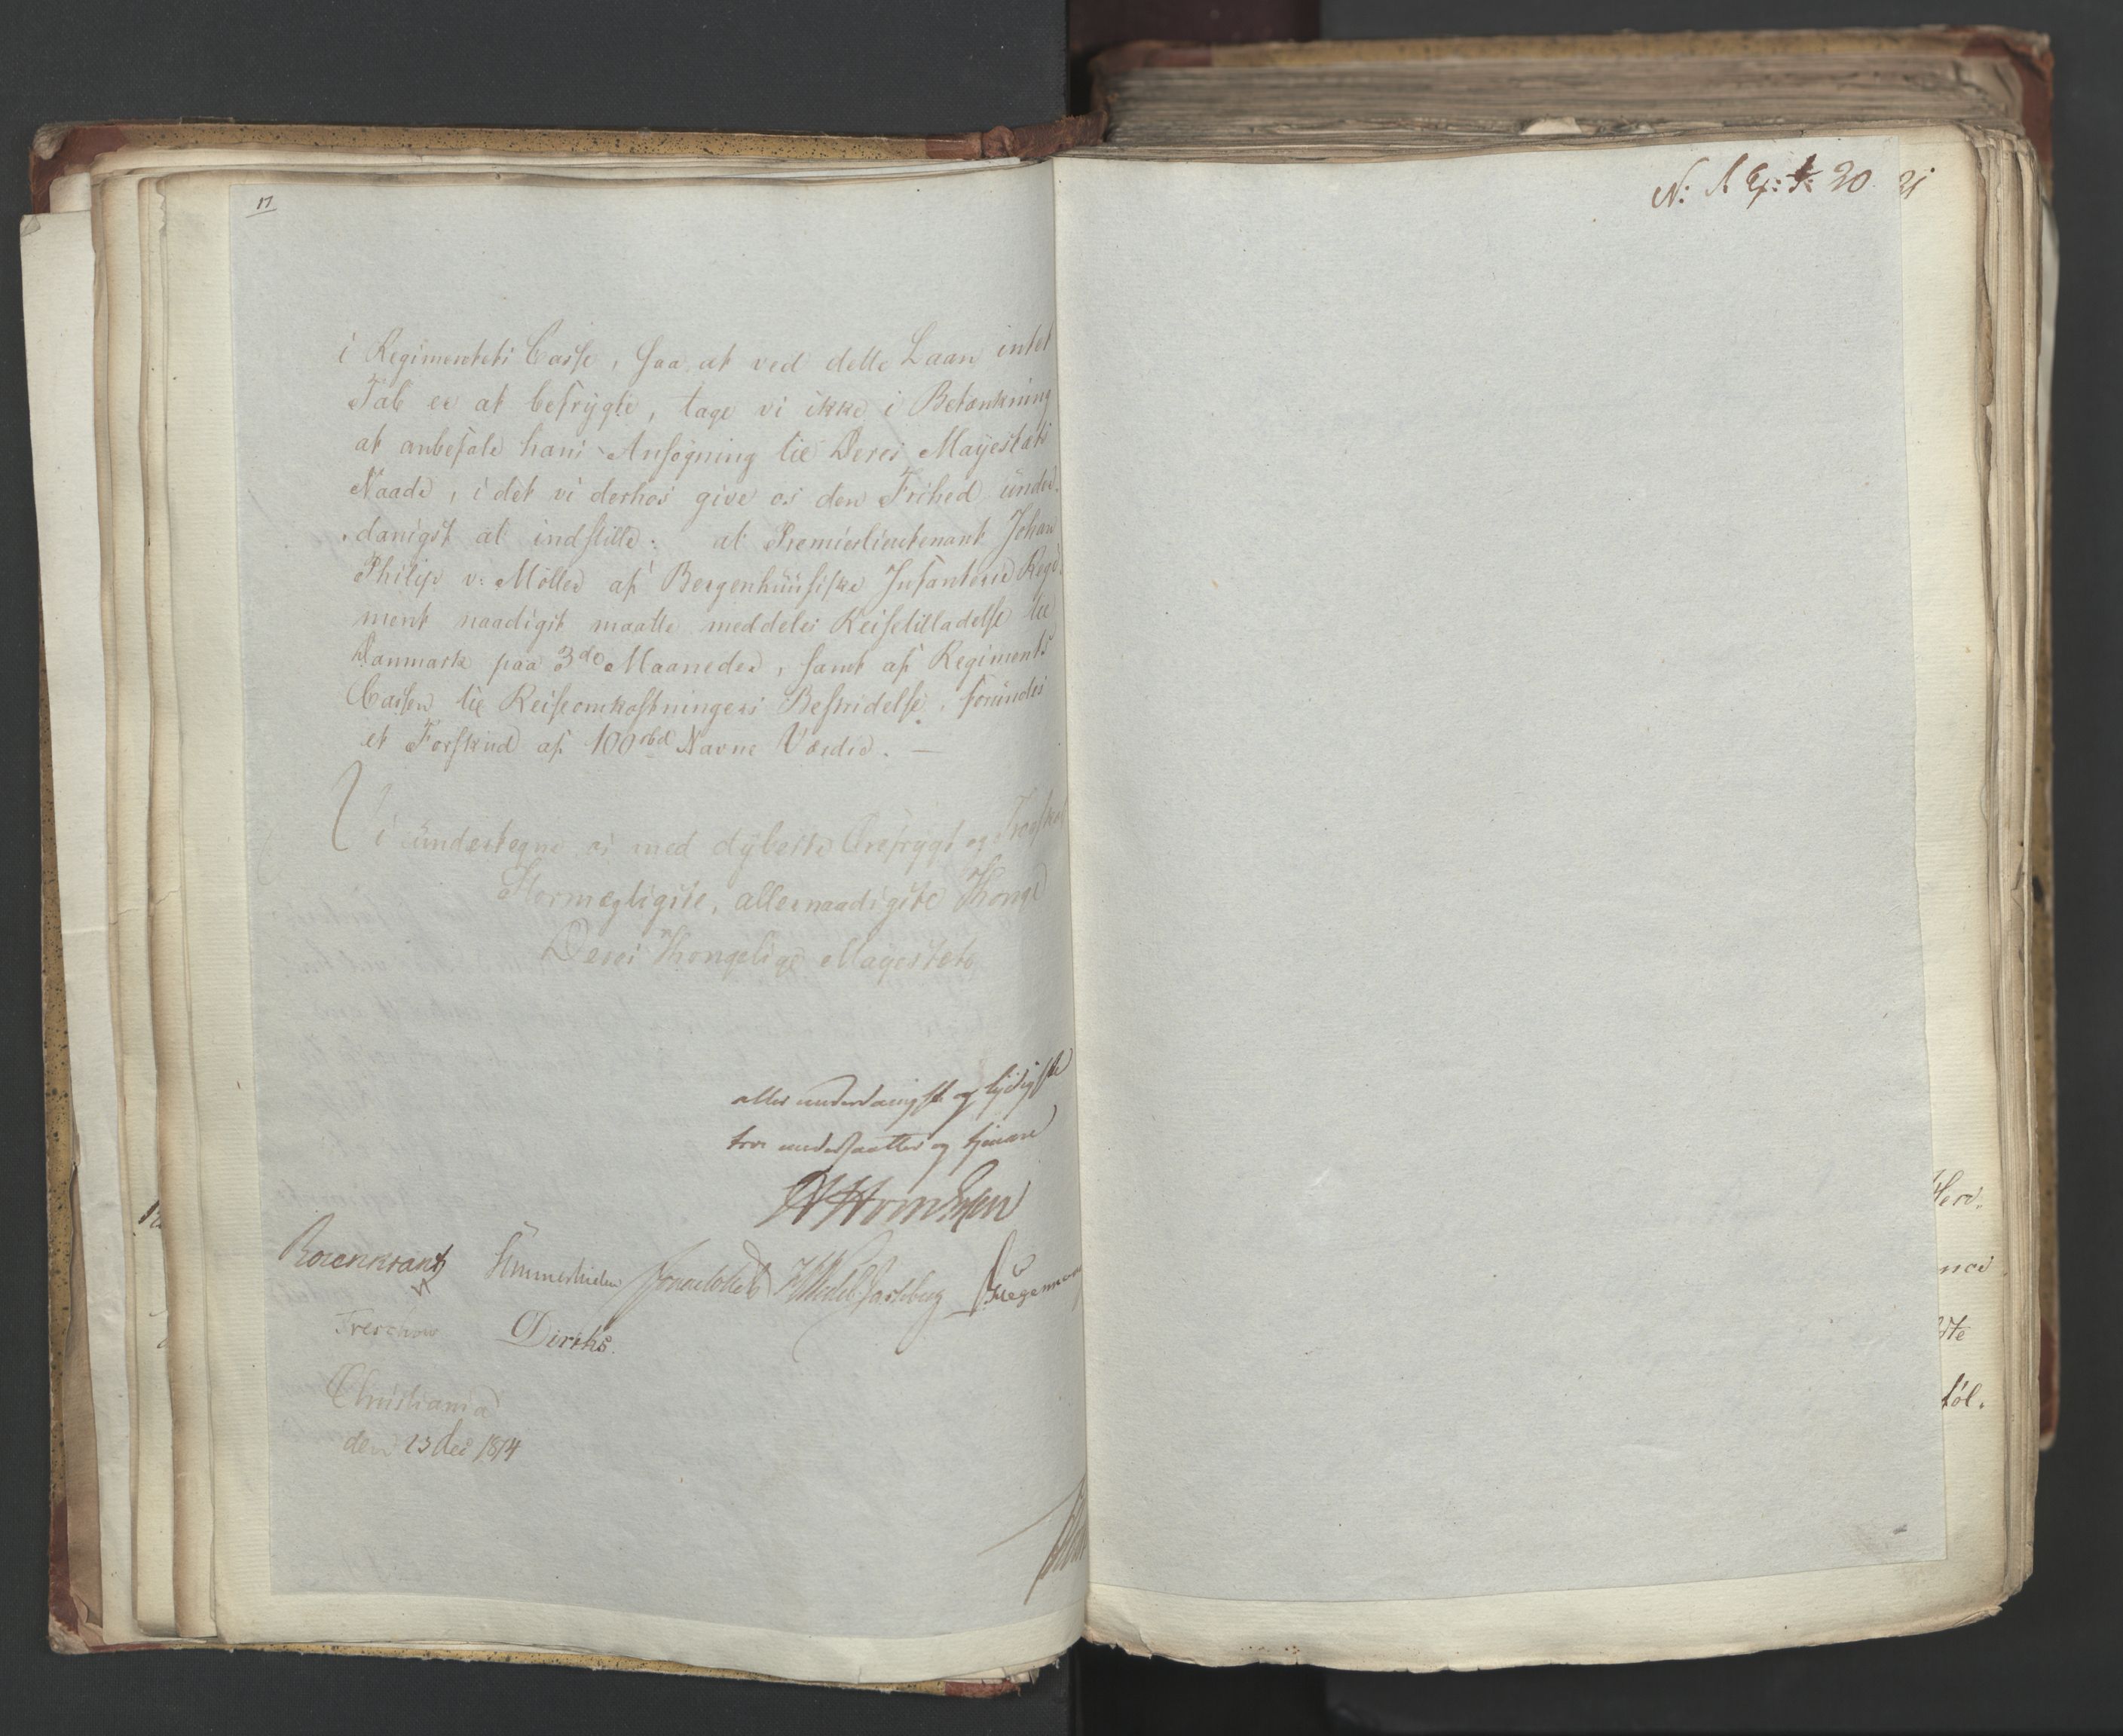 17
i Regimentets Casse, saa at ved dette Laan intet
Tab er at befrygte, tage vi ikke i Betænkning
at anbefale hans Ansøgning til Deres Mayestæts
Naade, i det vi derhos give os den Frihed under-
danigst at indstille: at Premierlieutenant Johan
Philip v: Møller af Bergenhuusiske Infanterie Regi-
ment naadigst maatte meddeles Reisetilladelse til
Danmark paa 3de Maaneder, samt af Regiments
Cassen til Reiseomkostningers Bestridelse, forundes
et Forskud af 100 rbd Navne Værdie. —
Vi undertegne os med dybeste Ærefrygt og Troeskab
Stormægtigste, allernaadigste Konge
Deres Kongelige Mayestæts
aller underdanigste og lydigste
troe undersaatter og tjenere
Rosenkrantz Sommerhielm JHWedel Jarlsberg
Treschow Diriks.
Christiania
den 23 Dec 1814
N: 1 20. 21
Herr.
nce
dte
føl.